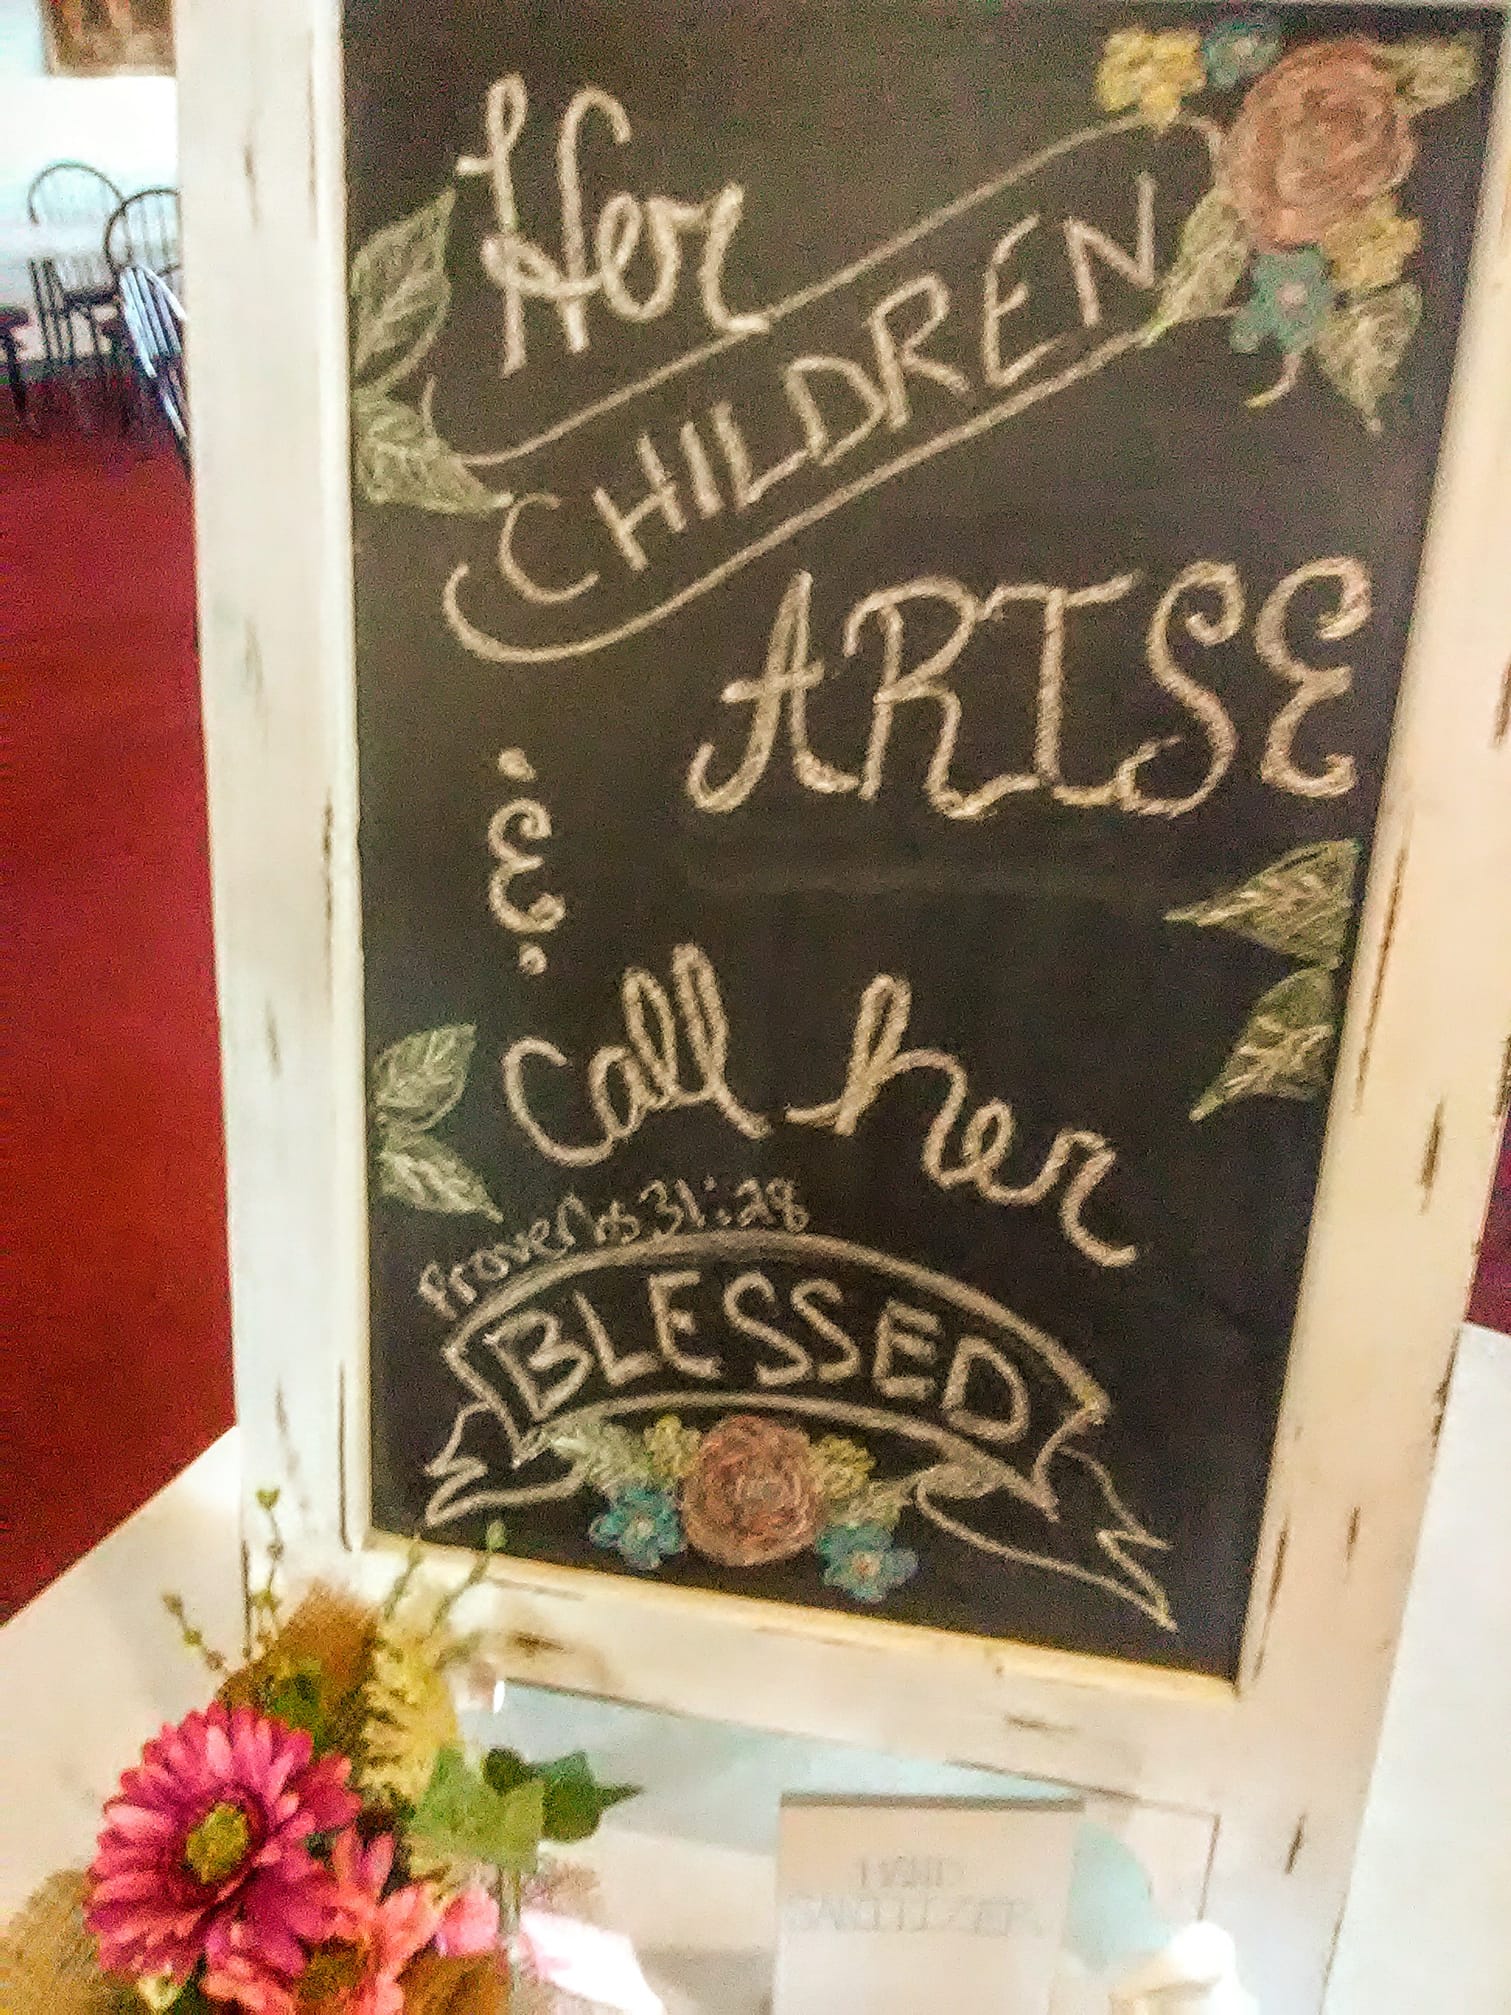 Her
CHILDREN
ARISE
&
Call her
Proverbs 31:28
BLESSED
HAND
SANITIZER